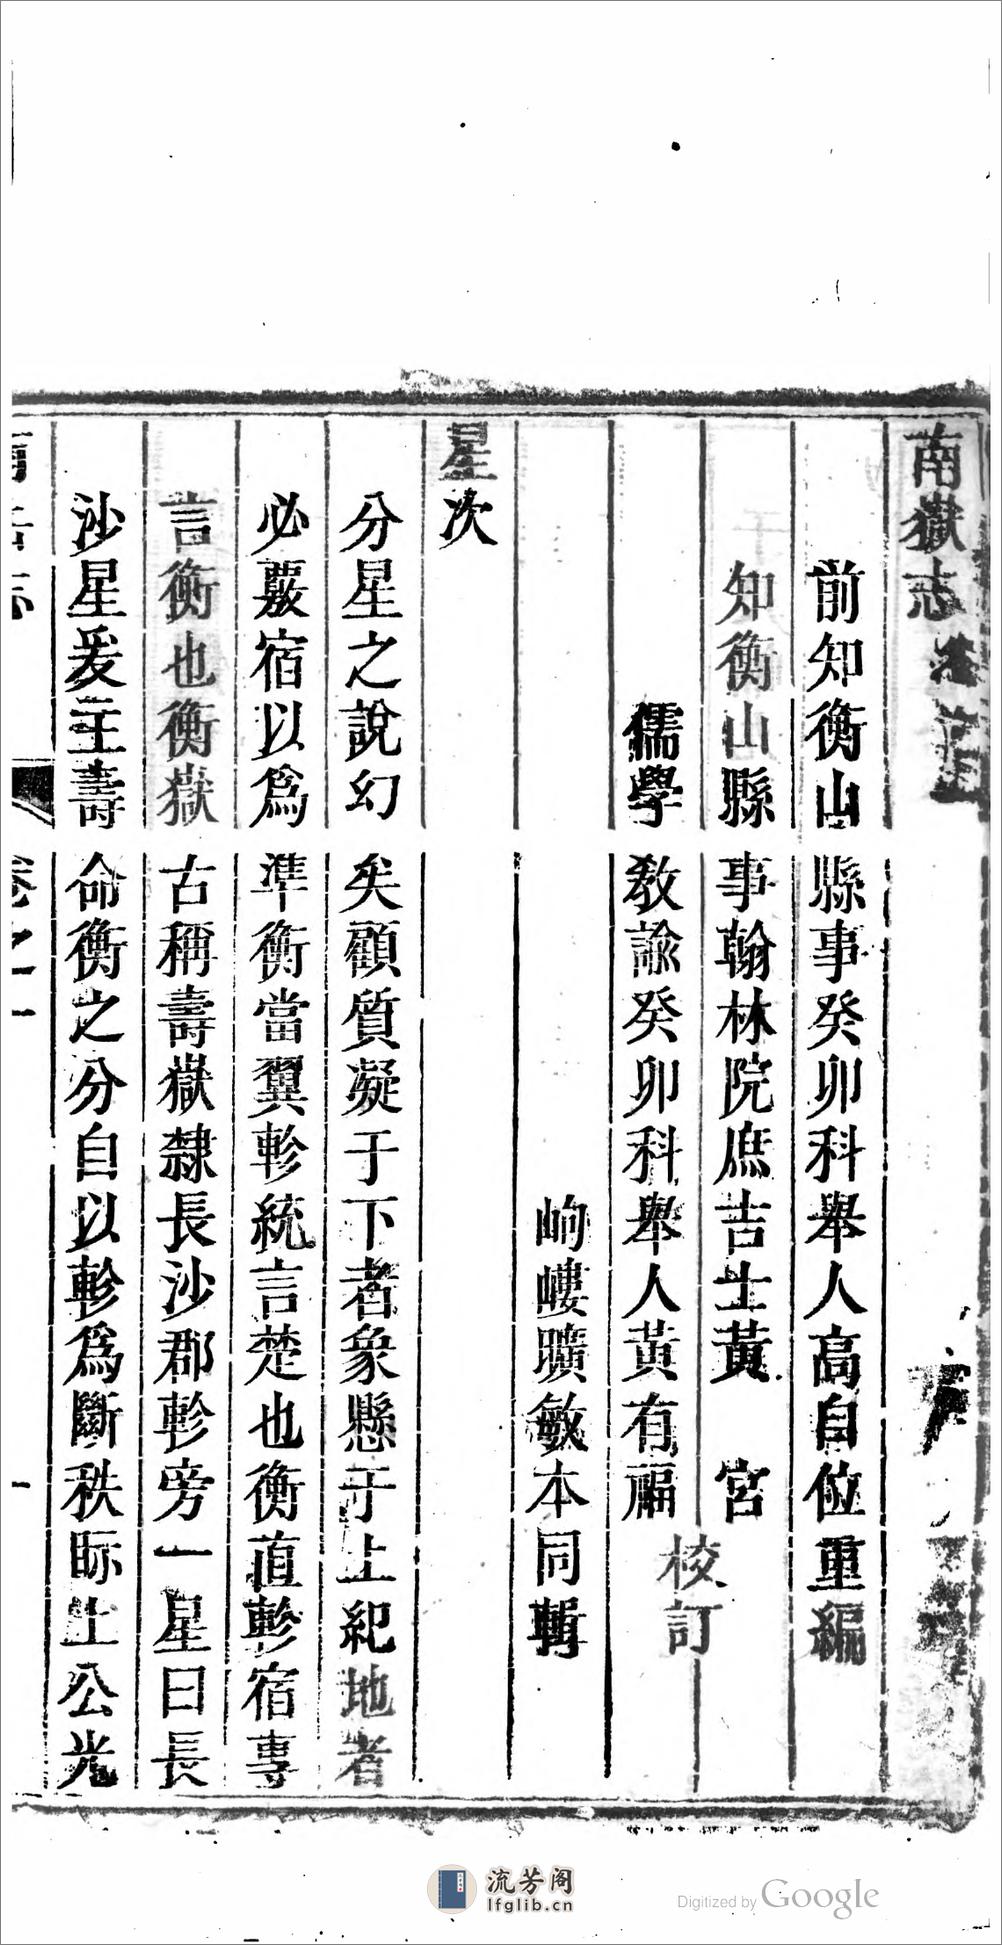 南嶽志卷
前知衡山縣事癸卯科舉人高自位重編
知衡山縣事翰林院庶吉士黃宮
儒學教諭癸卯科舉人黃有福
校訂
岣嶁曠敏本同輯
星次
分星之說幻矣顧質凝于下者象懸于上紀地者
必覈宿以為準衡當翼軫統言楚也衡直軫宿專
言衡也衡嶽古稱壽嶽隸長沙郡軫旁一星曰長
沙星爰主壽命衡之分自以軫為斷秩眎上公光
南岳志
卷之一
一
流芳阁
lfglib.cn
Digitized by Google